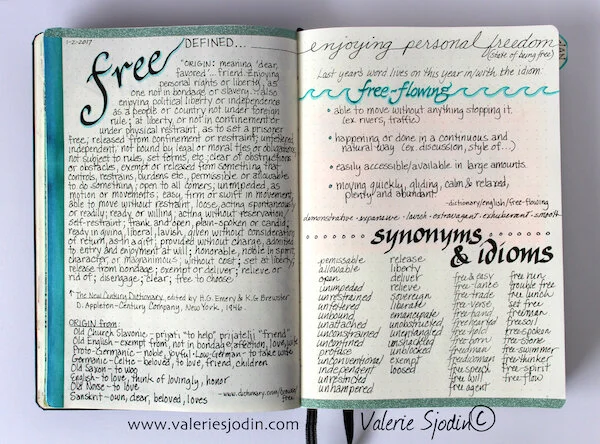 1-2-2017
free DEFINED...
"ORIGIN: meaning, 'dear,
favored'... friend. Enjoying
personal rights or liberty, as
one not in bondage or slavery; also
enjoying political liberty or independence
as a people or country not under foreign
rule; at liberty, or not in confinement or
under physical restraint, as to set a prisoner
free; released from confinement or restraint; unfettered,
independent, not bound by legal or moral ties or obligations
not subject to rules, set forms, etc; clear of obstructions
or obstacles, exempt or released from something that
controls, restrains, burdens etc; permissible or allowable
to do something; open to all comers; unimpeded, as
motion or movements; easy, firm or swift in movement,
able to move without restraint, loose, acting spontaneously
or readily; ready or willing; acting without reservation/
self-restraint; frank and open, plain-spoken or candid;
ready in giving, liberal, lavish, given without consideration
of return, as in a gift; provided without charge, admitted
to entry and enjoyment at will; honorable, noble in spirit,
character, or magnanimous; without cost; set at liberty,
release from bondage; exempt or deliver; relieve or
rid of; disengage; clear; free to choose"
* The New Century Dictionary, edited by H.G. Emery & K.G Brewster
D. Appleton-Century Company, New York, 1946.
ORIGIN from:
Old Church Slavonic - prijati "to help" prijatelji "friend"
Old English - exempt from, not in bondage; affection, love,
Proto-Germanic - noble, joyful Low-German - to take
Germanic-Celtic - beloved, to love, friend, children
Old Saxon - to woo
English - to love, think of lovingly, honor
Old Norse - to love
Sanskrit - own, dear, beloved, loves
- www.dictionary.com/browse/
free
enjoying personal freedom
(state of being free)
Last year's word lives on this year in/with the idiom:
free-flowing
• able to move without anything stopping it.
(ex: rivers, traffic)
• happening or done in a continuous and
natural way (ex: discussion, style of...)
• easily accessible/available in large amounts.
• moving quickly, gliding, calm & relaxed,
plenty and abundant.
-dictionary/english/free-flowing
demonstrative • expansive • lavish • extravagant • exhuberant • smooth
synonyms
& idioms
permissable
allowable
open
unimpeded
unrestrained
unfettered
unbound
unattached
unconstrained
unconfined
profuse
unconventional
independent
unrestricted
unhampered
release
liberty
deliver
relieve
sovereign
liberate
emancipate
unobstructed
unentangled
unshackled
unblocked
exempt
loosed
free & easy
free-lance
free-trade
free-verse
free hand
free hearted
free hold
free born
freedman
freedwoman
free speech
free will
free agent
free run
trouble free
free lunch
set free
freeman
freesol
free-spoken
free-stone
free-swimmer
free-thinker
free-spirit
free-flow
www.valeriesjodin.com
Valerie Sjodin ©